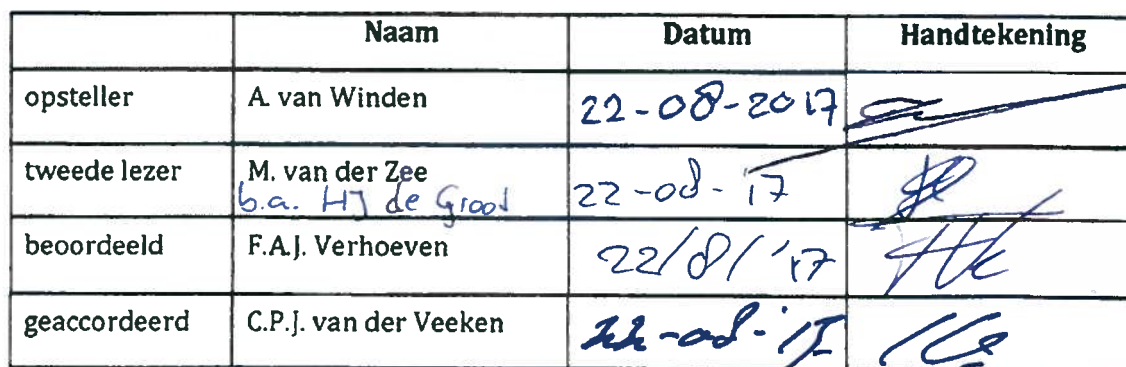 Naam Datum Handtekening
opsteller A. van Winden 22-08-2017
tweede lezer M. van der Zee 22-08-'17
b.a. HJ de Groot
beoordeeld F.A.J. Verhoeven 22/8/'17
geaccordeerd C.P.J. van der Veeken 22-08-'17